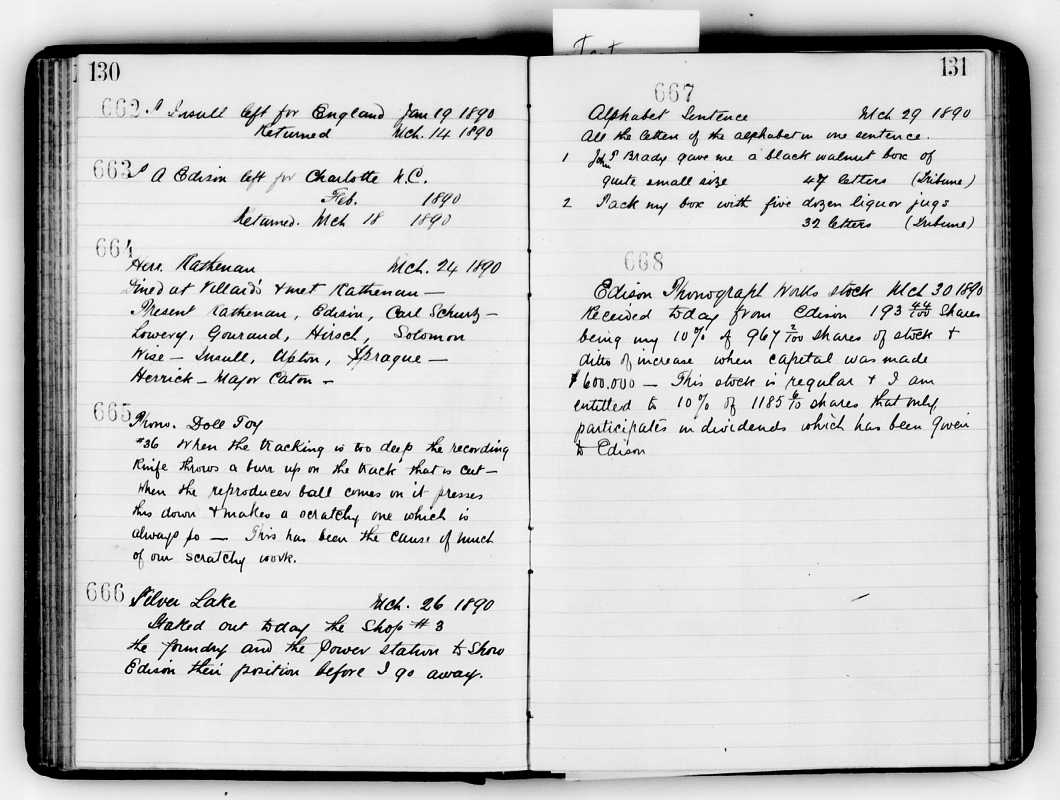 130
662 S Insull left for England Jan 19 1890
Returned Mch. 14 1890
663 T A Edison left for Charlotte N.C.
Feb. 1890
Returned. Mch 18 1890
664
Herr. Rathenau Mch. 24 1890
Dined at Villard's & met Rathenau —
Present Rathenau, Edison, Carl Schurz —
Lowery, Gouraud, Hirsch, Solomon
Wise — Insull, Upton, Sprague —
Herrick — Major Eaton —
665 Phon. Doll Toy
#36 When the tracking is too deep the recording
knife throws a burr up on the track that is cut —
When the reproducer ball comes on it presses
this down & makes a scratchy one which is
always so — This has been the cause of much
of our scratchy work.
666 Silver Lake Mch. 26 1890
Staked out today the Shop # 3
the foundry and the Power station to show
Edison their position before I go away.
131
667
Alphabet Sentence Mch 29 1890
All the letters of the alphabet in one sentence.
1 John P Brady gave me a black walnut box of
quite small size 47 letters (Tribune)
2 Pack my box with five dozen liquor jugs
32 letters (Tribune)
668
Edison Phonograph Works stock Mch 30 1890
Received today from Edison 193 44/100 Shares
being my 10% of 967 2/100 shares of stock &
ditto of increase when capital was made
$600.000 — This stock is regular & I am
entitled to 10% of 1185 6/10 shares that only
participates in dividends which has been given
to Edison